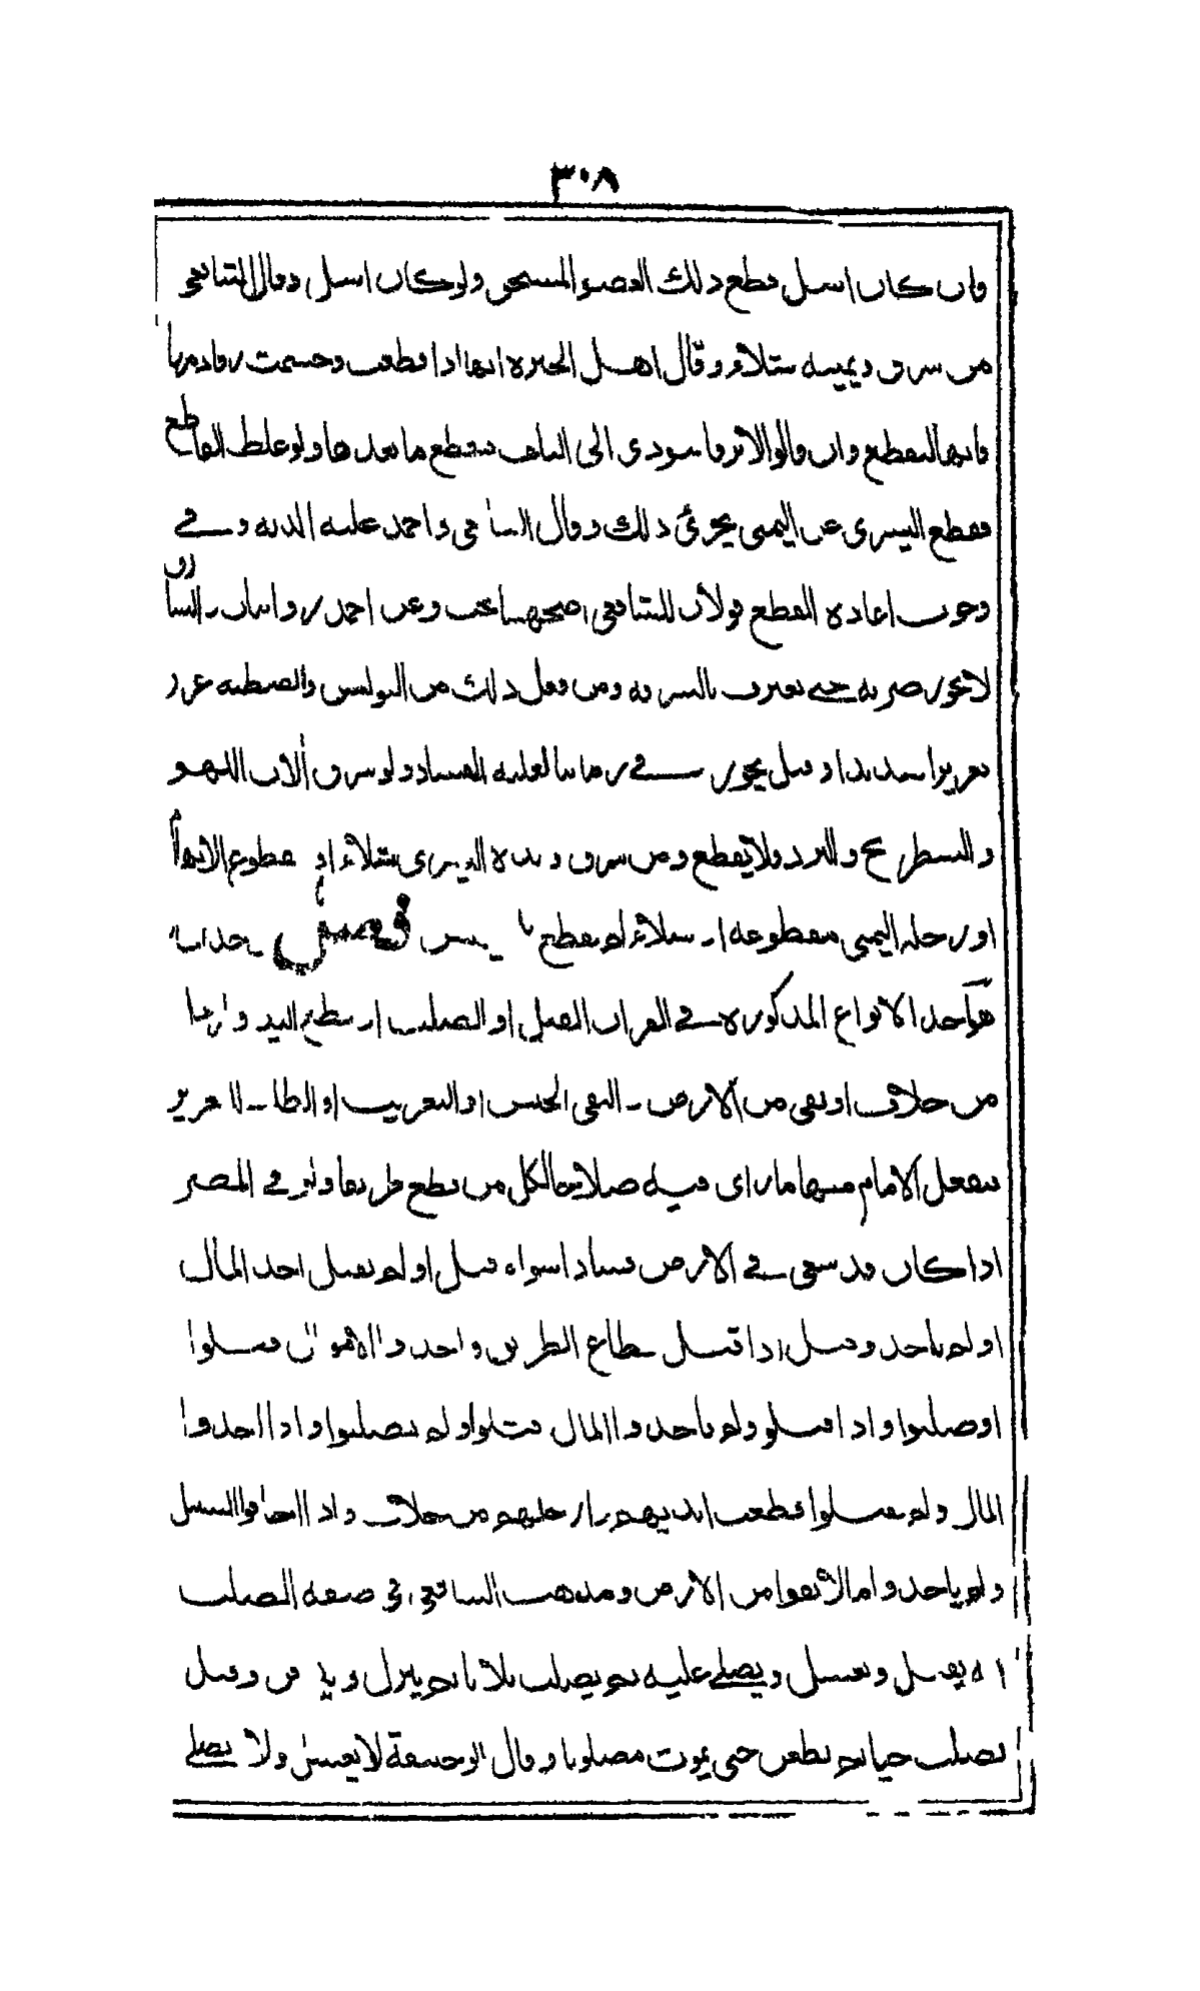 ٣٠٨
وان كان اشل قطع ذلك العضو المستحق ولو كان اشل وقال الشافعي
من سرق ويمينه شلاء وقال اهل الخبرة انها اذا قطعت وحسمت رقا دمها
فانها تقطع وان قالوا لا ترقا تؤدي الى التلف تقطع ما بعدها ولو غلط القاطع
فقطع اليسرى عن اليمنى يجزئ ذلك وقال الشافعي واحمد عليه الدية وفي
وجوب اعادة القطع قولان للشافعي اصحهما يجب وعن احمد روايتان السارق
لا يجوز ضربه حتى يعترف بالسرقة ومن فعل ذلك من البوليس والضبطية عزر
تعزيرا شديدا وقيل يجوز في زماننا لغلبة الفساد ولو سرق آلات اللهو
والشطرنج والنرد ولا يقطع ومن سرق ويده اليسرى شلاء او مقطوع الابهام
او رجله اليمنى مقطوعة او شلاء لم يقطع
هو احد الانواع المذكورة في القران القتل او الصلب او قطع اليد
من خلاف او نفي من الارض النفي الحبس او التعزيب
يفعل الامام منها ما راى فيه صلاحا لكل من قطع طريقا ولو في المصر
اذا كان قد سعى في الارض فسادا سواء قتل او لم يقتل اخذ المال
او لم ياخذ وقيل اذا قتل قطاع الطريق واخذوا الاموال قتلوا
او صلبوا واذا قتلو ولم ياخذوا المال قتلوا ولم يصلبوا واذا اخذوا
المال ولم يقتلوا قطعت ايديهم وارجلهم من خلاف واذا اخافوا السبيل
ولم ياخذوا مالا نفوا من الارض ومذهب الشافعي في صفة الصلب
انه يقتل ويغسل ويصلى عليه ثم يصلب ثلاثا ثم ينزل ويدفن وقيل
يصلب حيا ثم يطعن حتى يموت مصلوبا وقال ابو حنيفة لا يغسل ولا يصلى